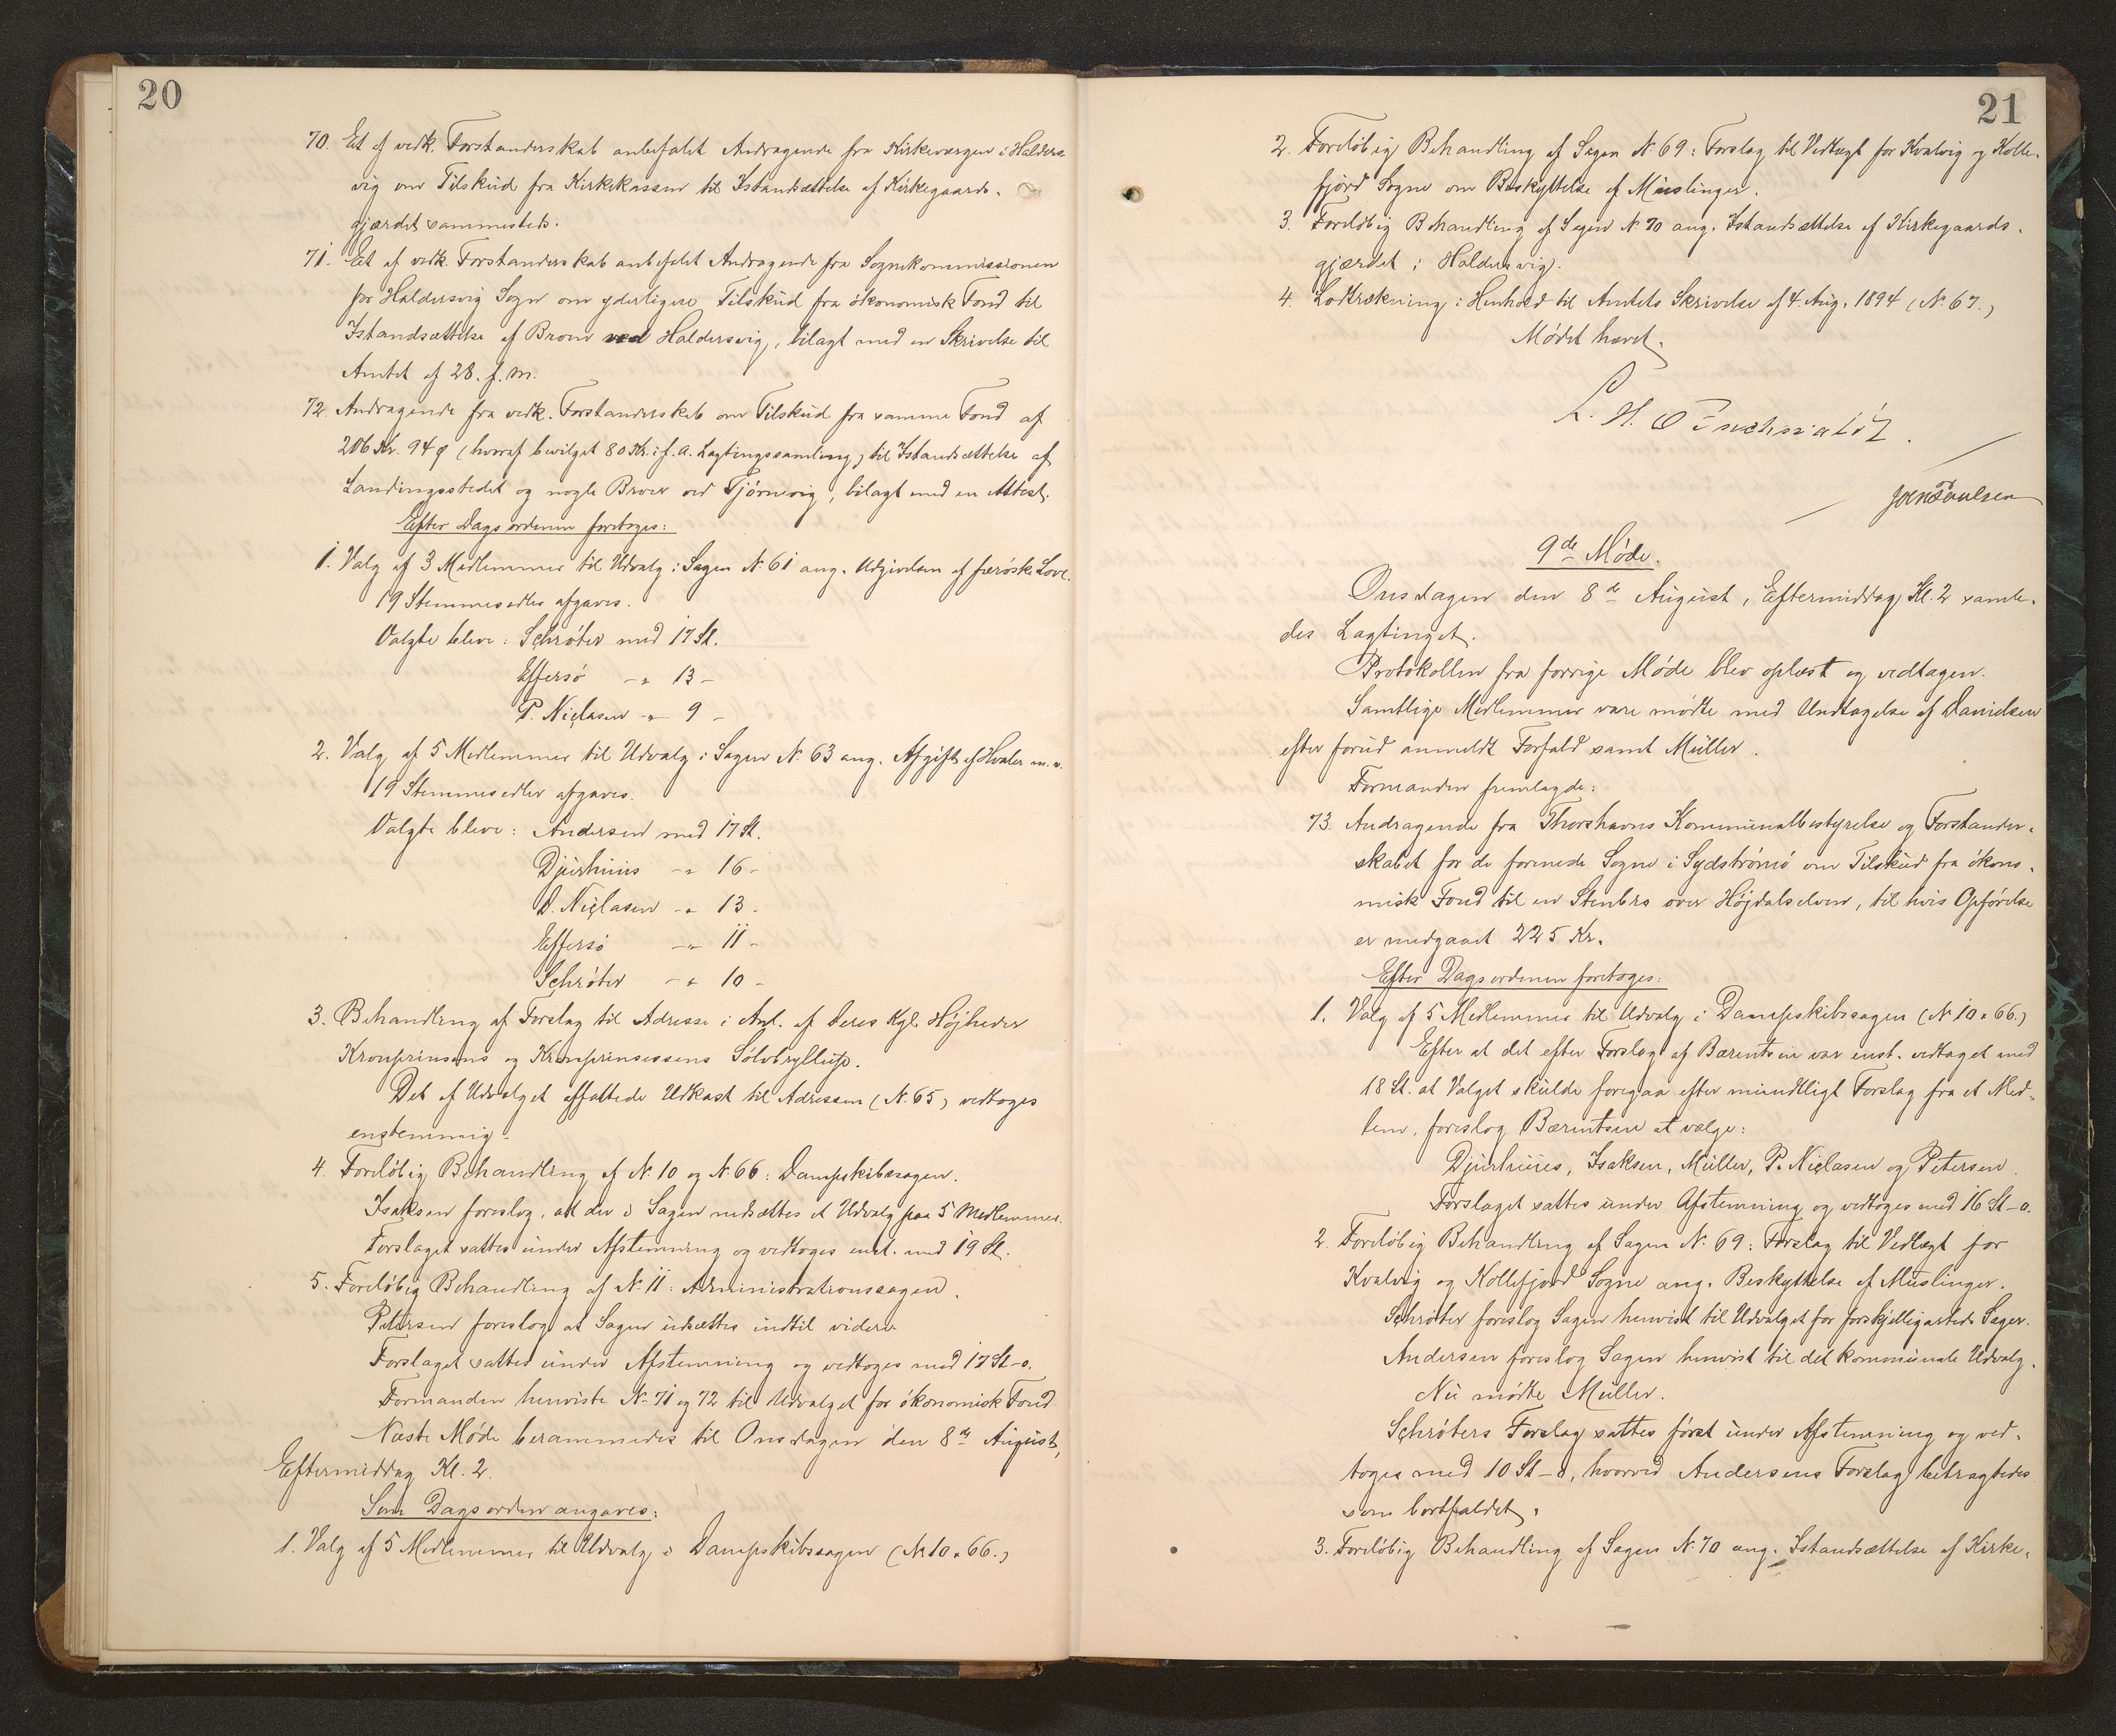 20
70. Et af vedk. Forstanderskab anbefalet Andragende fra Kirkeværgen i Halders-
vig om Tilskud fra Kirkekassen til Istandsættelse af Kirkegaards-
gjærdet sammesteds.
71. Et af vedk. Forstanderskab anbefalet Andragende fra Sognekommissionen
for Haldersvig Sogn om yderligere Tilskud fra økonomisk Fond til
Istandsættelse af Broen ved Haldersvig, bilagt med en Skrivelse til
Amtet af 28. f. m.
72. Andragende fra vedk. Forstanderskab om Tilskud fra samme Fond af
206 Kr. 94 ø (hvoraf bevilget 80 Kr. i f. A. Lagtingssamling) til Istandsættelse af
Landingsstedet og nogle Broer ved Tjørnevig, bilagt med en Attest.
Efter Dagsordenen foretoges:
1. Valg af 3 Medlemmer til Udvalg i Sagen N. 61 ang. Udgivelsen af færøske Love.
19 Stemmesedler afgaves.
Valgte bleve: Schrøter med 17 St.
Effersø -"- 13 -
P. Niclasen -"- 9 -
2. Valg af 5 Medlemmer til Udvalg i Sagen N. 63 ang. Afgift af Hvaler m. v.
19 Stemmesedler afgaves.
Valgte bleve: Andersen med 17 St.
Djurhuus -"- 16 -
D. Niclasen -"- 13 -
Effersø -"- 11 -
Schrøter -"- 10 -
3. Behandling af Forslag til Adresse i Anl. af Deres Kgl. Højheder
Kronprinsens og Kronprinsessens Sølvbryllup.
Det af Udvalget affattede Udkast til Adressen (N. 65) vedtoges
enstemmig.
4. Foreløbig Behandling af N. 10 og N. 66: Dampskibssagen.
Isaksen foreslog, at der i Sagen nedsættes et Udvalg paa 5 Medlemmer.
Forslaget sattes under Afstemning og vedtoges enst. med 19 St.
5. Foreløbig Behandling af N. 11: Administrationssagen.
Petersen foreslog at Sagen udsættes indtil videre.
Forslaget sattes under Afstemning og vedtoges med 17 St-0.
Formanden henviste N. 71 og 72 til Udvalget for økonomisk Fond.
Næste Møde berammedes til Onsdagen den 8de August,
Eftermiddag Kl. 2.
Som Dagsorden angaves:
1. Valg af 5 Medlemmer til Udvalg i Dampskibssagen (N. 10 & 66.)
21
2. Foreløbig Behandling af Sagen N. 69: Forslag til Vedtægt for Kvalvig og Kolle-
fjord Sogne om Beskyttelse af Muslinger.
3. Foreløbig Behandling af Sagen N. 70 ang. Istandsættelse af Kirkegaards-
gjærdet i Haldersvig.
4. Lodtrækning i Henhold til Amtets Skrivelse af 4. Aug. 1894 (N. 67.)
Mødet hævet.
Joen Poulsen
9de Møde.
Onsdagen den 8de August, Eftermiddag Kl. 2 samle-
des Lagtinget.
Protokollen fra forrige Møde blev oplæst og vedtagen.
Samtlige Medlemmer vare mødte med Undtagelse af Danielsen
efter forud anmeldt Forfald samt Müller.
Formanden fremlagde:
73. Andragende fra Thorshavns Kommunalbestyrelse og Forstander-
skabet for de forenede Sogne i Sydstrømø om Tilskud fra økono-
misk Fond til en Stenbro over Højdalselven, til hvis Opførelse
er medgaaet 225 Kr.
Efter Dagsordenen foretoges:
1. Valg af 5 Medlemmer til Udvalg i Dampskibssagen (N. 10 & 66.)
Efter at det efter Forslag af Bærentsen var enst. vedtaget med
18 St. at Valget skulde foregaa efter mundtligt Forslag fra et Med-
lem, foreslog Bærentsen at vælge:
Djurhuus, Isaksen, Müller, P. Niclasen og Petersen.
Forslaget sattes under Afstemning og vedtoges med 16 St-0.
2. Foreløbig Behandling af Sagen N. 69: Forslag til Vedtægt for
Kvalvig og Kollefjord Sogne ang. Beskyttelse af Muslinger.
Schrøter foreslog Sagen henvist til Udvalget for forskjelligartede Sager.
Andersen foreslog Sagen henvist til det kommunale Udvalg.
Nu mødte Müller.
Schrøters Forslag sattes først under Afstemning og ved-
toges med 10 St-0, hvorved Andersens Forslag betragtedes
som bortfaldet.
3. Foreløbig Behandling af Sagen N. 70 ang. Istandsættelse af Kirke-